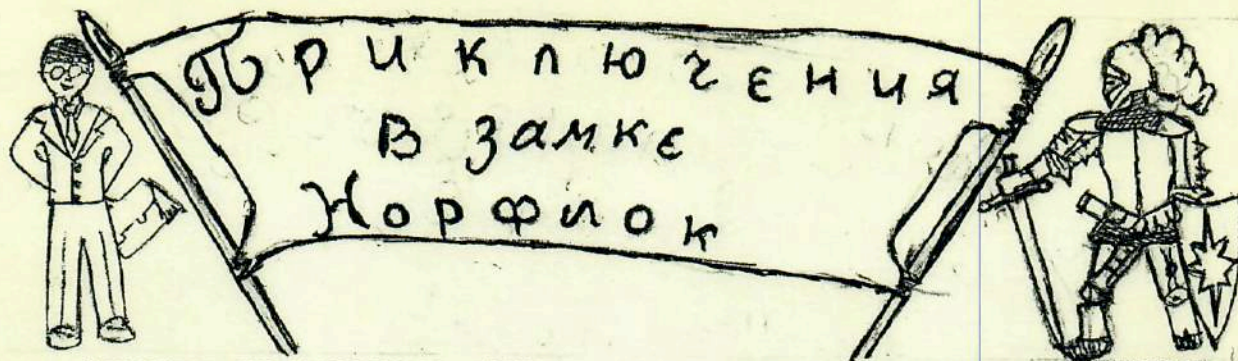 Приключения
в замке
Норфлок